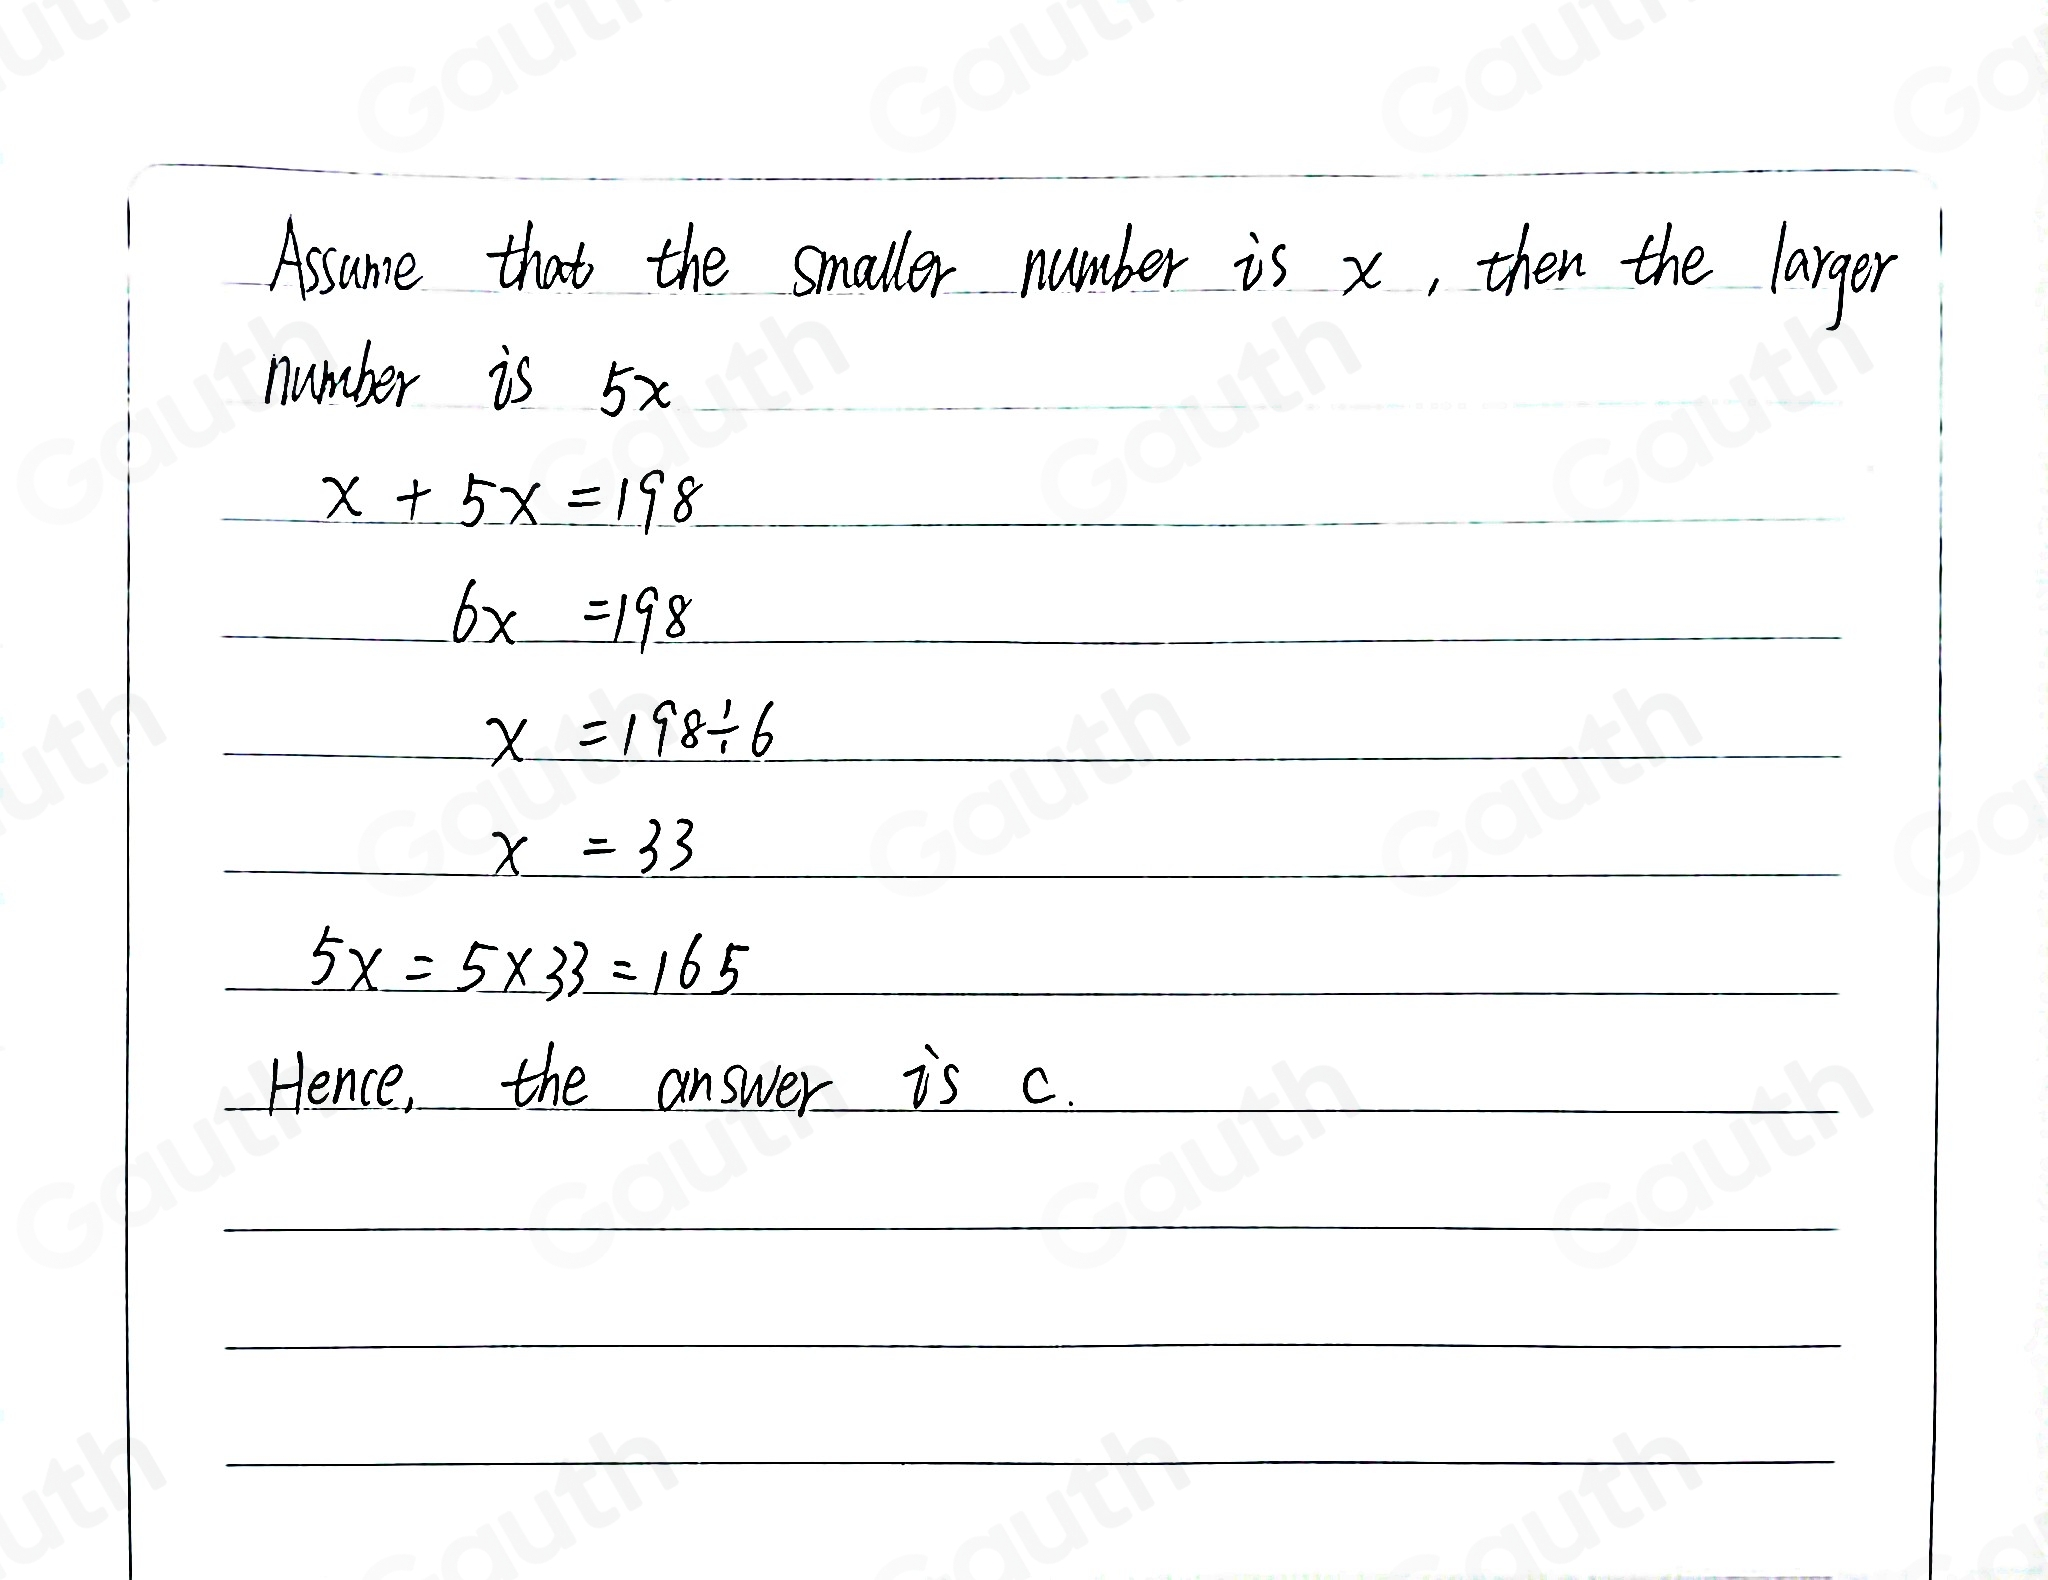 Assume that the smaller number is x, then the larger
number is 5x
x + 5x = 198
6x = 198
x = 198 ÷ 6
x = 33
5x = 5 × 33 = 165
Hence, the answer is c.